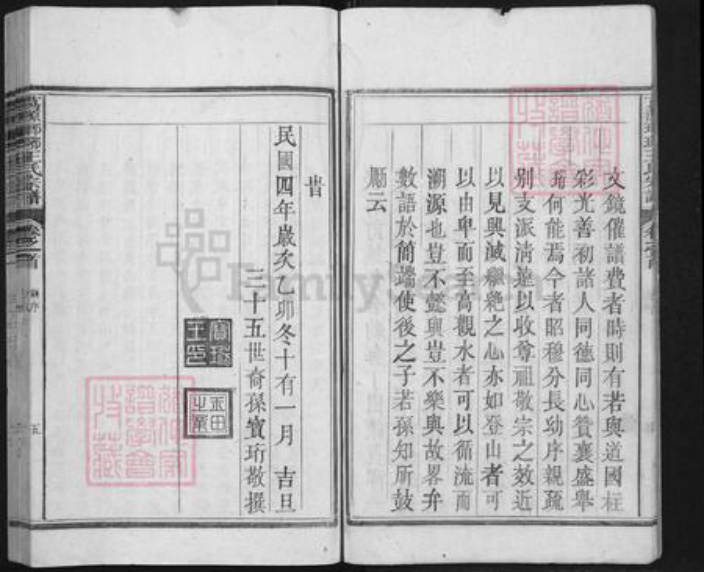 文鏡催譜費者時則有若與道國柱
彩光善初諸人同德同心贊襄盛舉
珩何能焉今者昭穆分長幼序親疏
別支派清遠以收尊祖敬宗之效近
以見興滅繼絕之心亦如登山者可
以由卑而至高觀水者可以循流而
溯源也豈不懿與豈不樂與故畧弁
數語於簡端使後之子若孫知所鼓
勵云
旹
民國四年歲次乙卯冬十有一月 吉旦
三十五世裔孫寶珩敬撰
寶珩
王氏宗譜
卷之首
五
FamilySearch